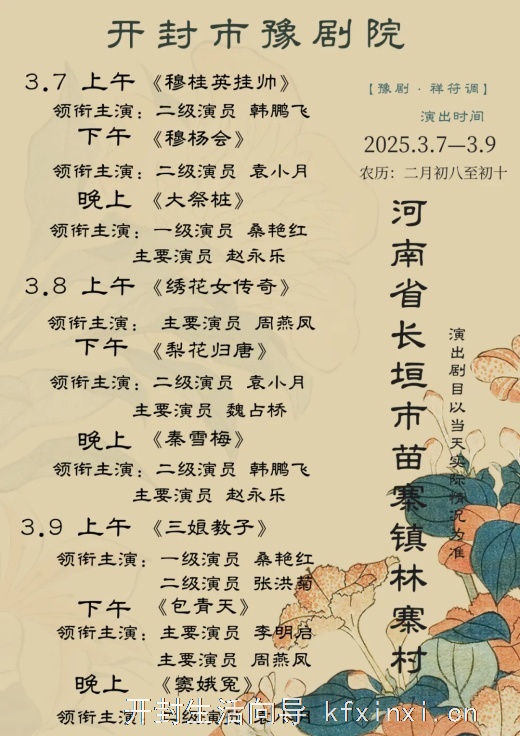 开封市豫剧院
3.7 上午 《穆桂英挂帅》
领衔主演：二级演员 韩鹏飞
下午 《穆杨会》
领衔主演：二级演员 袁小月
晚上 《大祭桩》
领衔主演：一级演员 桑艳红
主要演员 赵永乐
3.8 上午 《绣花女传奇》
领衔主演： 主要演员 周燕凤
下午 《梨花归唐》
领衔主演：二级演员 袁小月
主要演员 魏占桥
晚上 《秦雪梅》
领衔主演：二级演员 韩鹏飞
主要演员 赵永乐
3.9 上午 《三娘教子》
领衔主演： 一级演员 桑艳红
二级演员 张洪菊
下午 《包青天》
领衔主演：主要演员 李明启
主要演员 周燕凤
晚上 《窦娥冤》
领衔主演：二级演员 袁小月
【豫剧 · 祥符调】
演出时间
2025.3.7—3.9
农历：二月初八至初十
河南省长垣市苗寨镇林寨村
演出剧目以当天实际情况为准
开封生活向导 kfxinxi.cn